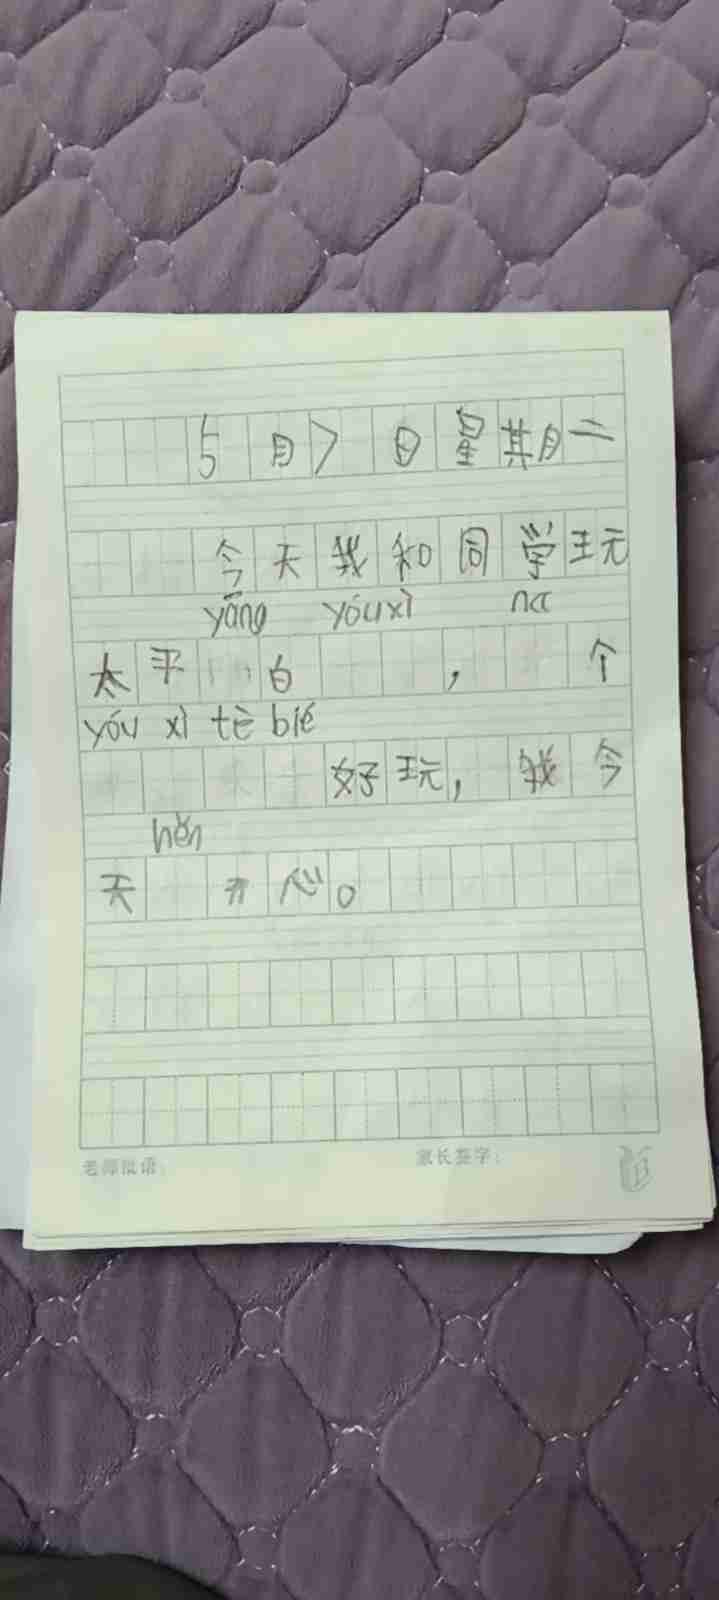 5月7日星期二
今天我和同学玩
yāng yóuxì na
太平 白 , 个
yóu xì tè bié
好玩, 我今
hěn
天 开心。
老师批语:
家长签字: